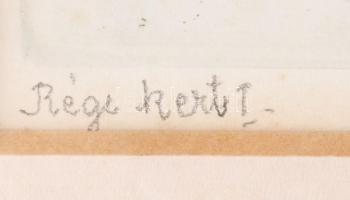 Régi kert I.